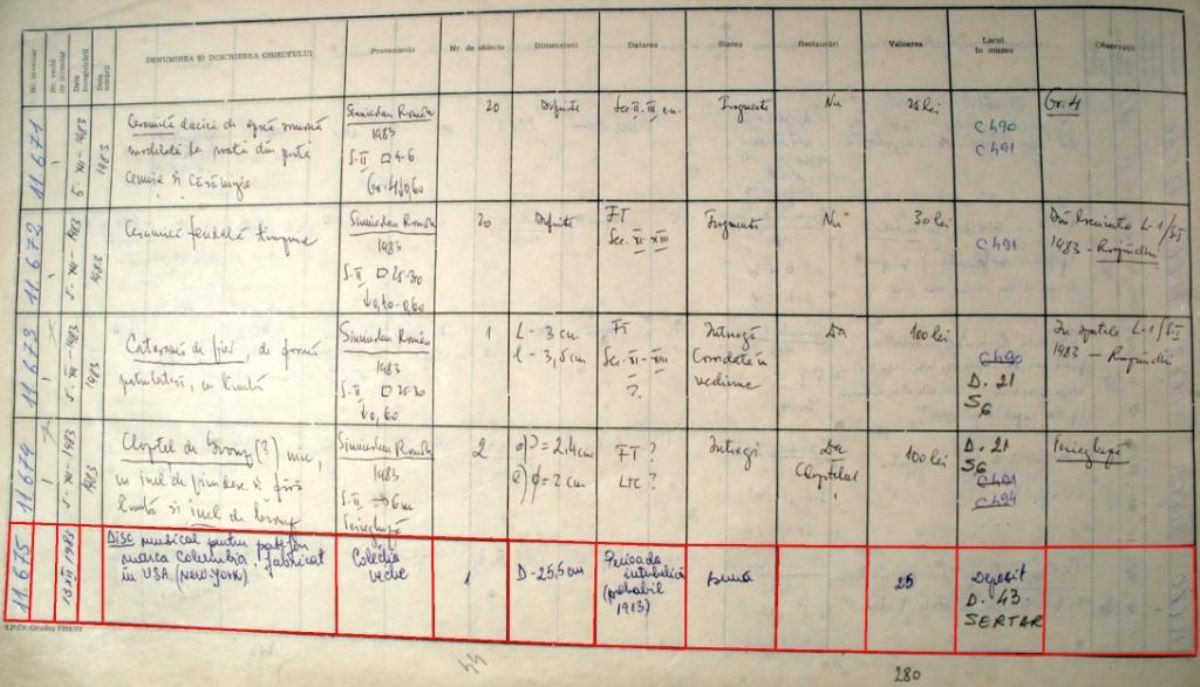 Nr. inventar
Nr. vechi de inventar
Data înregistrării
Data intrării
DENUMIREA ȘI DESCRIEREA OBIECTULUI
Proveniența
Nr. de obiecte
Dimensiuni
Datarea
Starea
Restaurări
Valoarea
Locul în muzeu
Observații
11 671
5 - XII - 1983
1983
Ceramică dacică de
modelată
cenușie și cărămizie
1983
S-II □ 4-6
Gr. 4 ↓0,60
20
Diferite
Sec. II-III e.n.
Fragmente
Nu
26 lei
C 490
C 491
Gr. 4
11 672
5 - XII - 1983
1983
Ceramică feudală timpurie
1983
S-II □ 25-30
↓0,40-0,60
20
Diferite
FT
Sec. XI-XIII
Fragmente
Nu
30 lei
C 491
L-1/SI
1983 -
11 673
5 - XII - 1983
1983
Cataramă de fier, de formă
, cu limbă
1983
S-II □ 25-30
↓0,60
1
L - 3 cm
l - 3,5 cm
FT
Sec. XI-XIII
?
Întreagă
Da
100 lei
C 490
D. 21
S6
În spatele L-1/SI
1983 -
11674
5 - XII - 1983
1983
Cloptel de bronz (?) mic,
cu inel de prindere și fără
limbă și inel de bronz
1983
S-II → 6m
Perieghază
2
= 2,4 cm
φ = 2 cm
FT ?
LTC ?
Întregi
Da
Cloptelul
100 lei
D. 21
S6
C 491
C 494
11.675
13 XII 1983
Disc muzical pentru patefon
marca Columbia, fabricat
în USA (New-York)
Colecția
veche
1
D-25,5 cm
Perioada
interbelică
(probabil
1913)
Bună
25
Depozit
D. 43
SERTAR
44
280